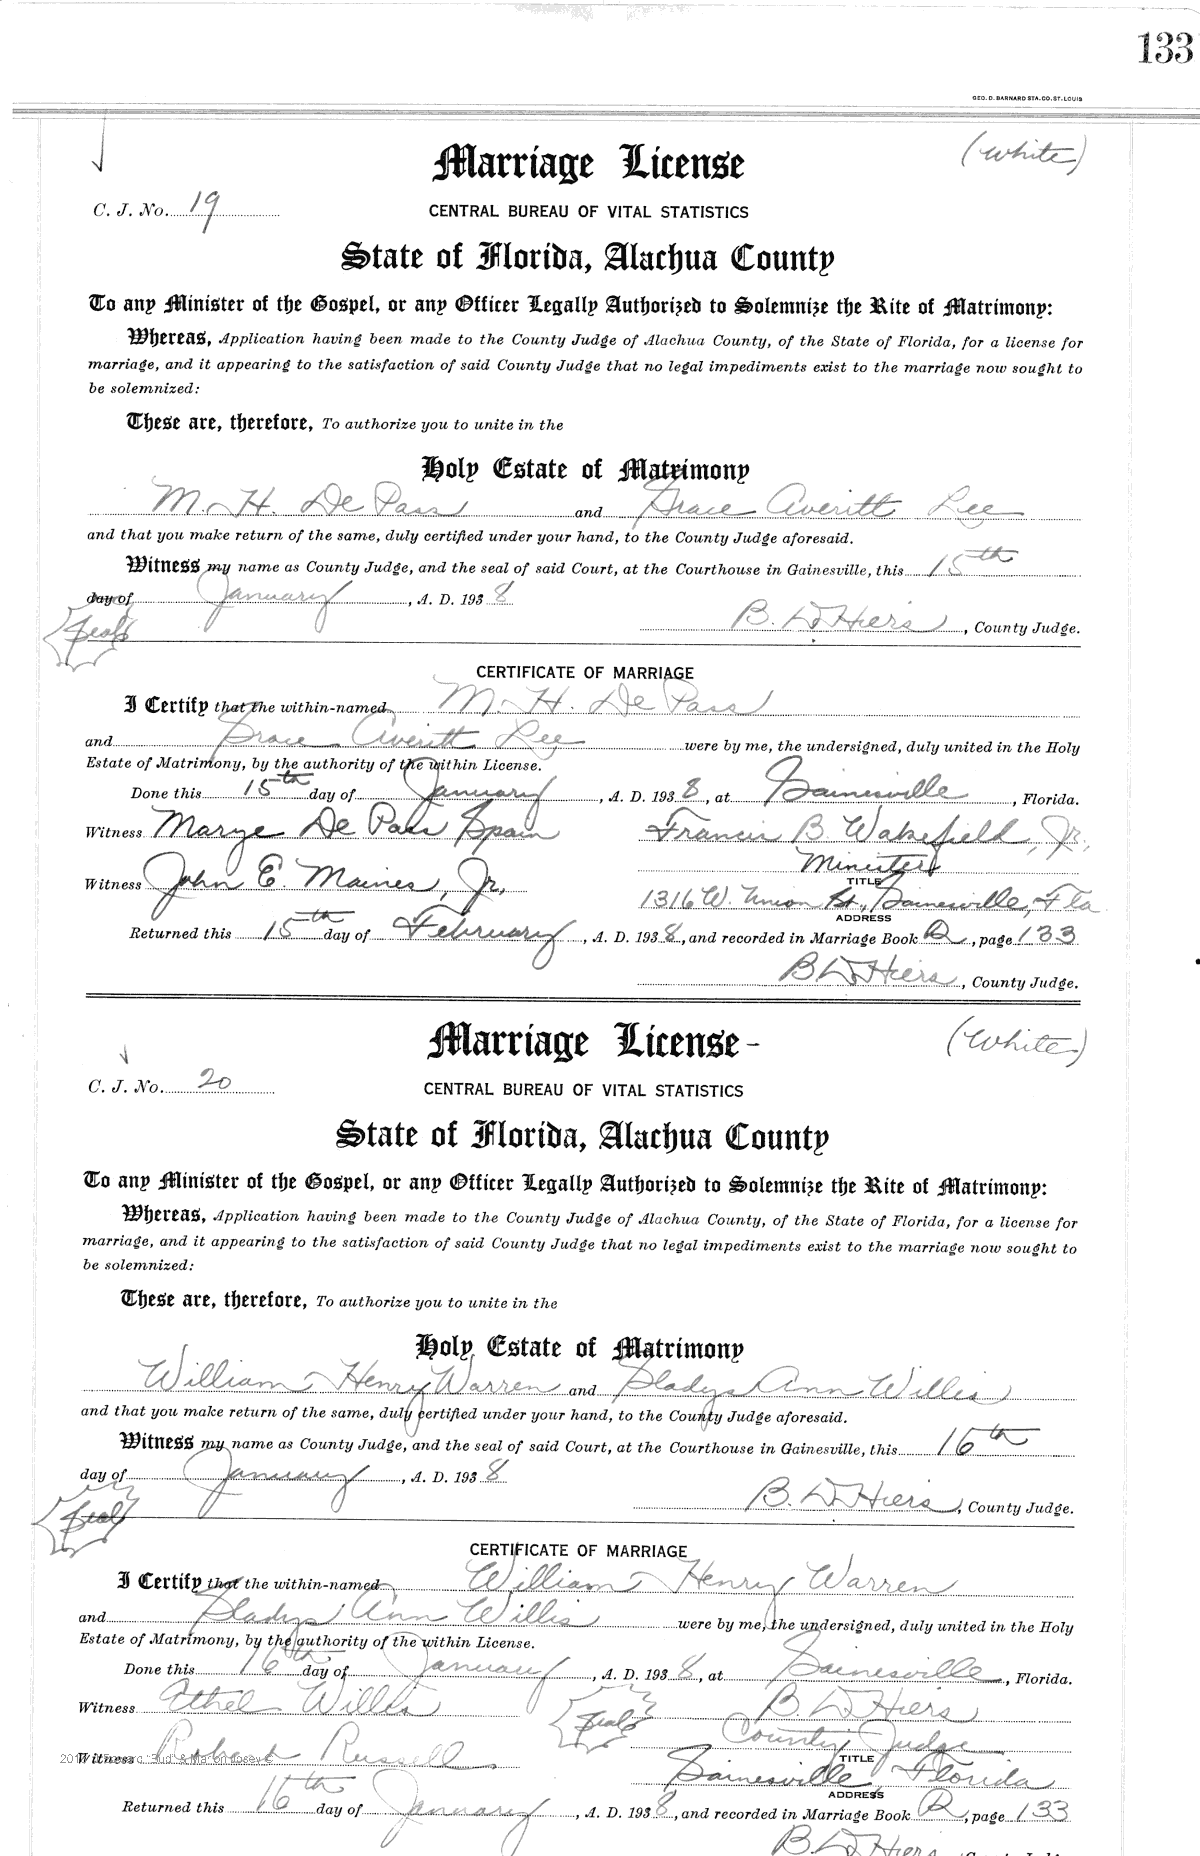 133
GEO. D. BARNARD STA. CO. ST. LOUIS
Marriage License
(White)
C. J. No. 19
CENTRAL BUREAU OF VITAL STATISTICS
State of Florida, Alachua County
To any Minister of the Gospel, or any Officer Legally Authorized to Solemnize the Rite of Matrimony:
Whereas, Application having been made to the County Judge of Alachua County, of the State of Florida, for a license for
marriage, and it appearing to the satisfaction of said County Judge that no legal impediments exist to the marriage now sought to
be solemnized:
These are, therefore, To authorize you to unite in the
Holy Estate of Matrimony
M. H. De Pass and Grace Averitt Lee
and that you make return of the same, duly certified under your hand, to the County Judge aforesaid.
Witness my name as County Judge, and the seal of said Court, at the Courthouse in Gainesville, this 15th
day of January, A. D. 1938
Seal
B. D. Hiers, County Judge.
CERTIFICATE OF MARRIAGE
I Certify that the within-named M. H. De Pass
and Grace Averitt Lee were by me, the undersigned, duly united in the Holy
Estate of Matrimony, by the authority of the within License.
Done this 15th day of January, A. D. 1938, at Gainesville, Florida.
Witness Marye De Pass Spain Francis B. Wakefield, Jr.,
Minister
Witness John E. Maines, Jr. TITLE
1316 W. Union St., Gainesville, Fla
ADDRESS
Returned this 15th day of February, A. D. 1938, and recorded in Marriage Book R, page 133
B D Hiers, County Judge.
Marriage License -
(White)
C. J. No. 20
CENTRAL BUREAU OF VITAL STATISTICS
State of Florida, Alachua County
To any Minister of the Gospel, or any Officer Legally Authorized to Solemnize the Rite of Matrimony:
Whereas, Application having been made to the County Judge of Alachua County, of the State of Florida, for a license for
marriage, and it appearing to the satisfaction of said County Judge that no legal impediments exist to the marriage now sought to
be solemnized:
These are, therefore, To authorize you to unite in the
Holy Estate of Matrimony
William Henry Warren and Gladys Ann Willis
and that you make return of the same, duly certified under your hand, to the County Judge aforesaid.
Witness my name as County Judge, and the seal of said Court, at the Courthouse in Gainesville, this 16th
day of January, A. D. 1938
Seal
B. D. Hiers, County Judge.
CERTIFICATE OF MARRIAGE
I Certify that the within-named William Henry Warren
and Gladys Ann Willis were by me, the undersigned, duly united in the Holy
Estate of Matrimony, by the authority of the within License.
Done this 16th day of January, A. D. 1938, at Gainesville, Florida.
Witness Ethel Willis Seal B. D. Hiers
County Judge
Witness Robert Russell TITLE
Gainesville Florida
ADDRESS
Returned this 16th day of January, A. D. 1938, and recorded in Marriage Book R, page 133
B. D. Hiers, County Judge.